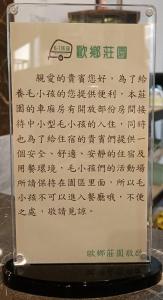 歐鄉莊園
親愛的貴賓您好，為了給
養毛小孩的您提供便利，本莊
園的車廂房有開放部份房間接
待中小型毛小孩的入住，同時
也為了給住宿的貴賓們提供一
個安全、舒適、安靜的住宿及
用餐環境，毛小孩們的活動場
所請保持在園區里面，所以毛
小孩不可以進入餐廳哦，不便
之處，敬請見諒。
歐鄉莊園敬啟